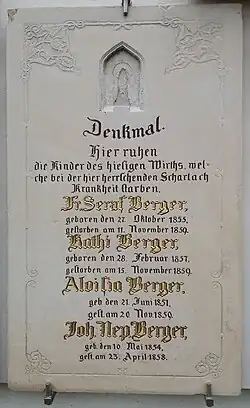 Denkmal.
Hier ruhen
die Kinder des hiesigen Wirths, wel-
che bei der hier herrschenden Scharlach
Krankheit starben.
Fr. Seraf Berger,
geboren den 22. Oktober 1855,
gestorben am 11. November 1859.
Kathi Berger,
geboren den 28. Februar 1857.
gestorben am 15. November 1859.
Aloisia Berger,
geb den 21. Juni 1851,
gest am 20 Nov. 1859.
Joh Nep Berger,
geb. den 10. Mai 1854,
gest am 23. April 1858.